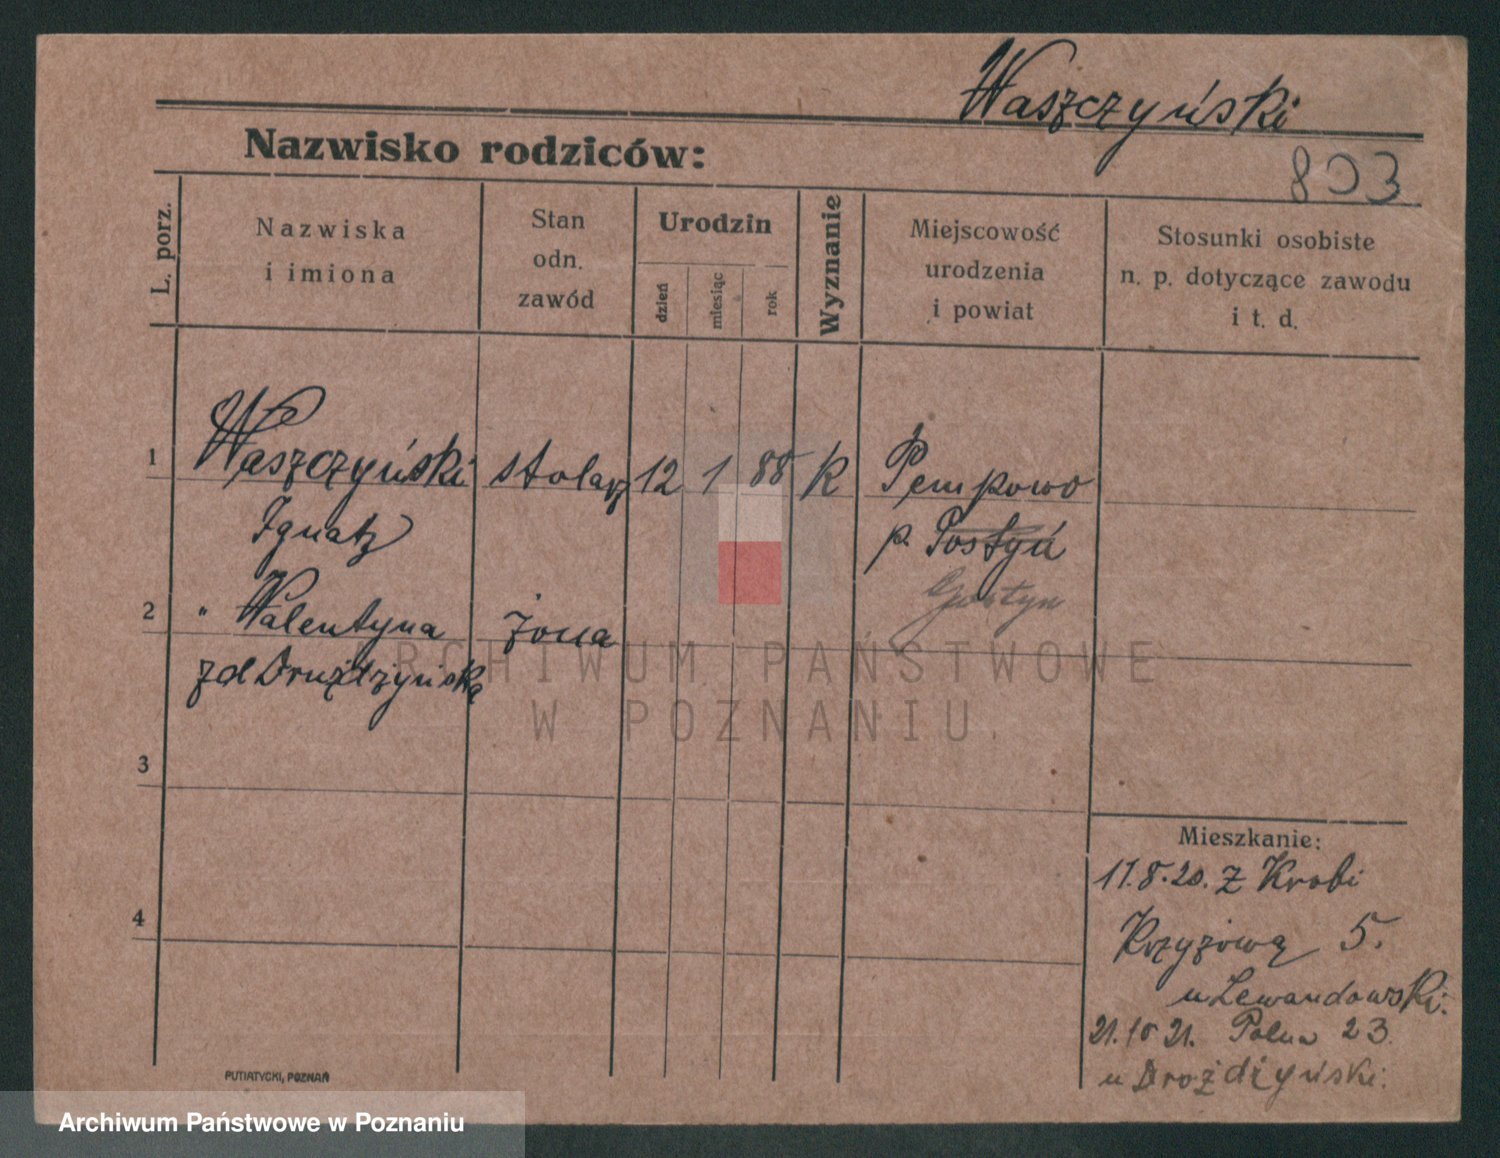 Waszczyński
Nazwisko rodziców:
803
L. porz.
Nazwiska
i imiona
Stan
odn.
zawód
Urodzin
dzień
miesiąc
rok
Wyznanie
Miejscowość
urodzenia
i powiat
Stosunki osobiste
n. p. dotyczące zawodu
i t. d.
1 Waszczyński stolarz 12 1 88 K Pempowo
Ignatz p. Postyń
Gostyn
2 " Walentyna żona
zd Drużdzyńska
3
4
Mieszkanie:
17.8.20. z Krobi
Krzyżowa 5.
u Lewandowski.
21.10 21. Polna 23.
u Drożdżyński.
PUTIATYCKI, POZNAŃ
ARCHIWUM PAŃSTWOWE
W POZNANIU.
Archiwum Państwowe w Poznaniu